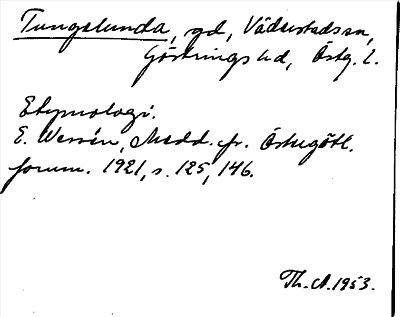 Tungelunda, gd, Väderstads sn,
Göstrings hd, Östg. l.
Etymologi.
E. Wessén, Medd. fr. Östergötl.
fornm. 1921, s. 125, 146.
Th. A. 1953.